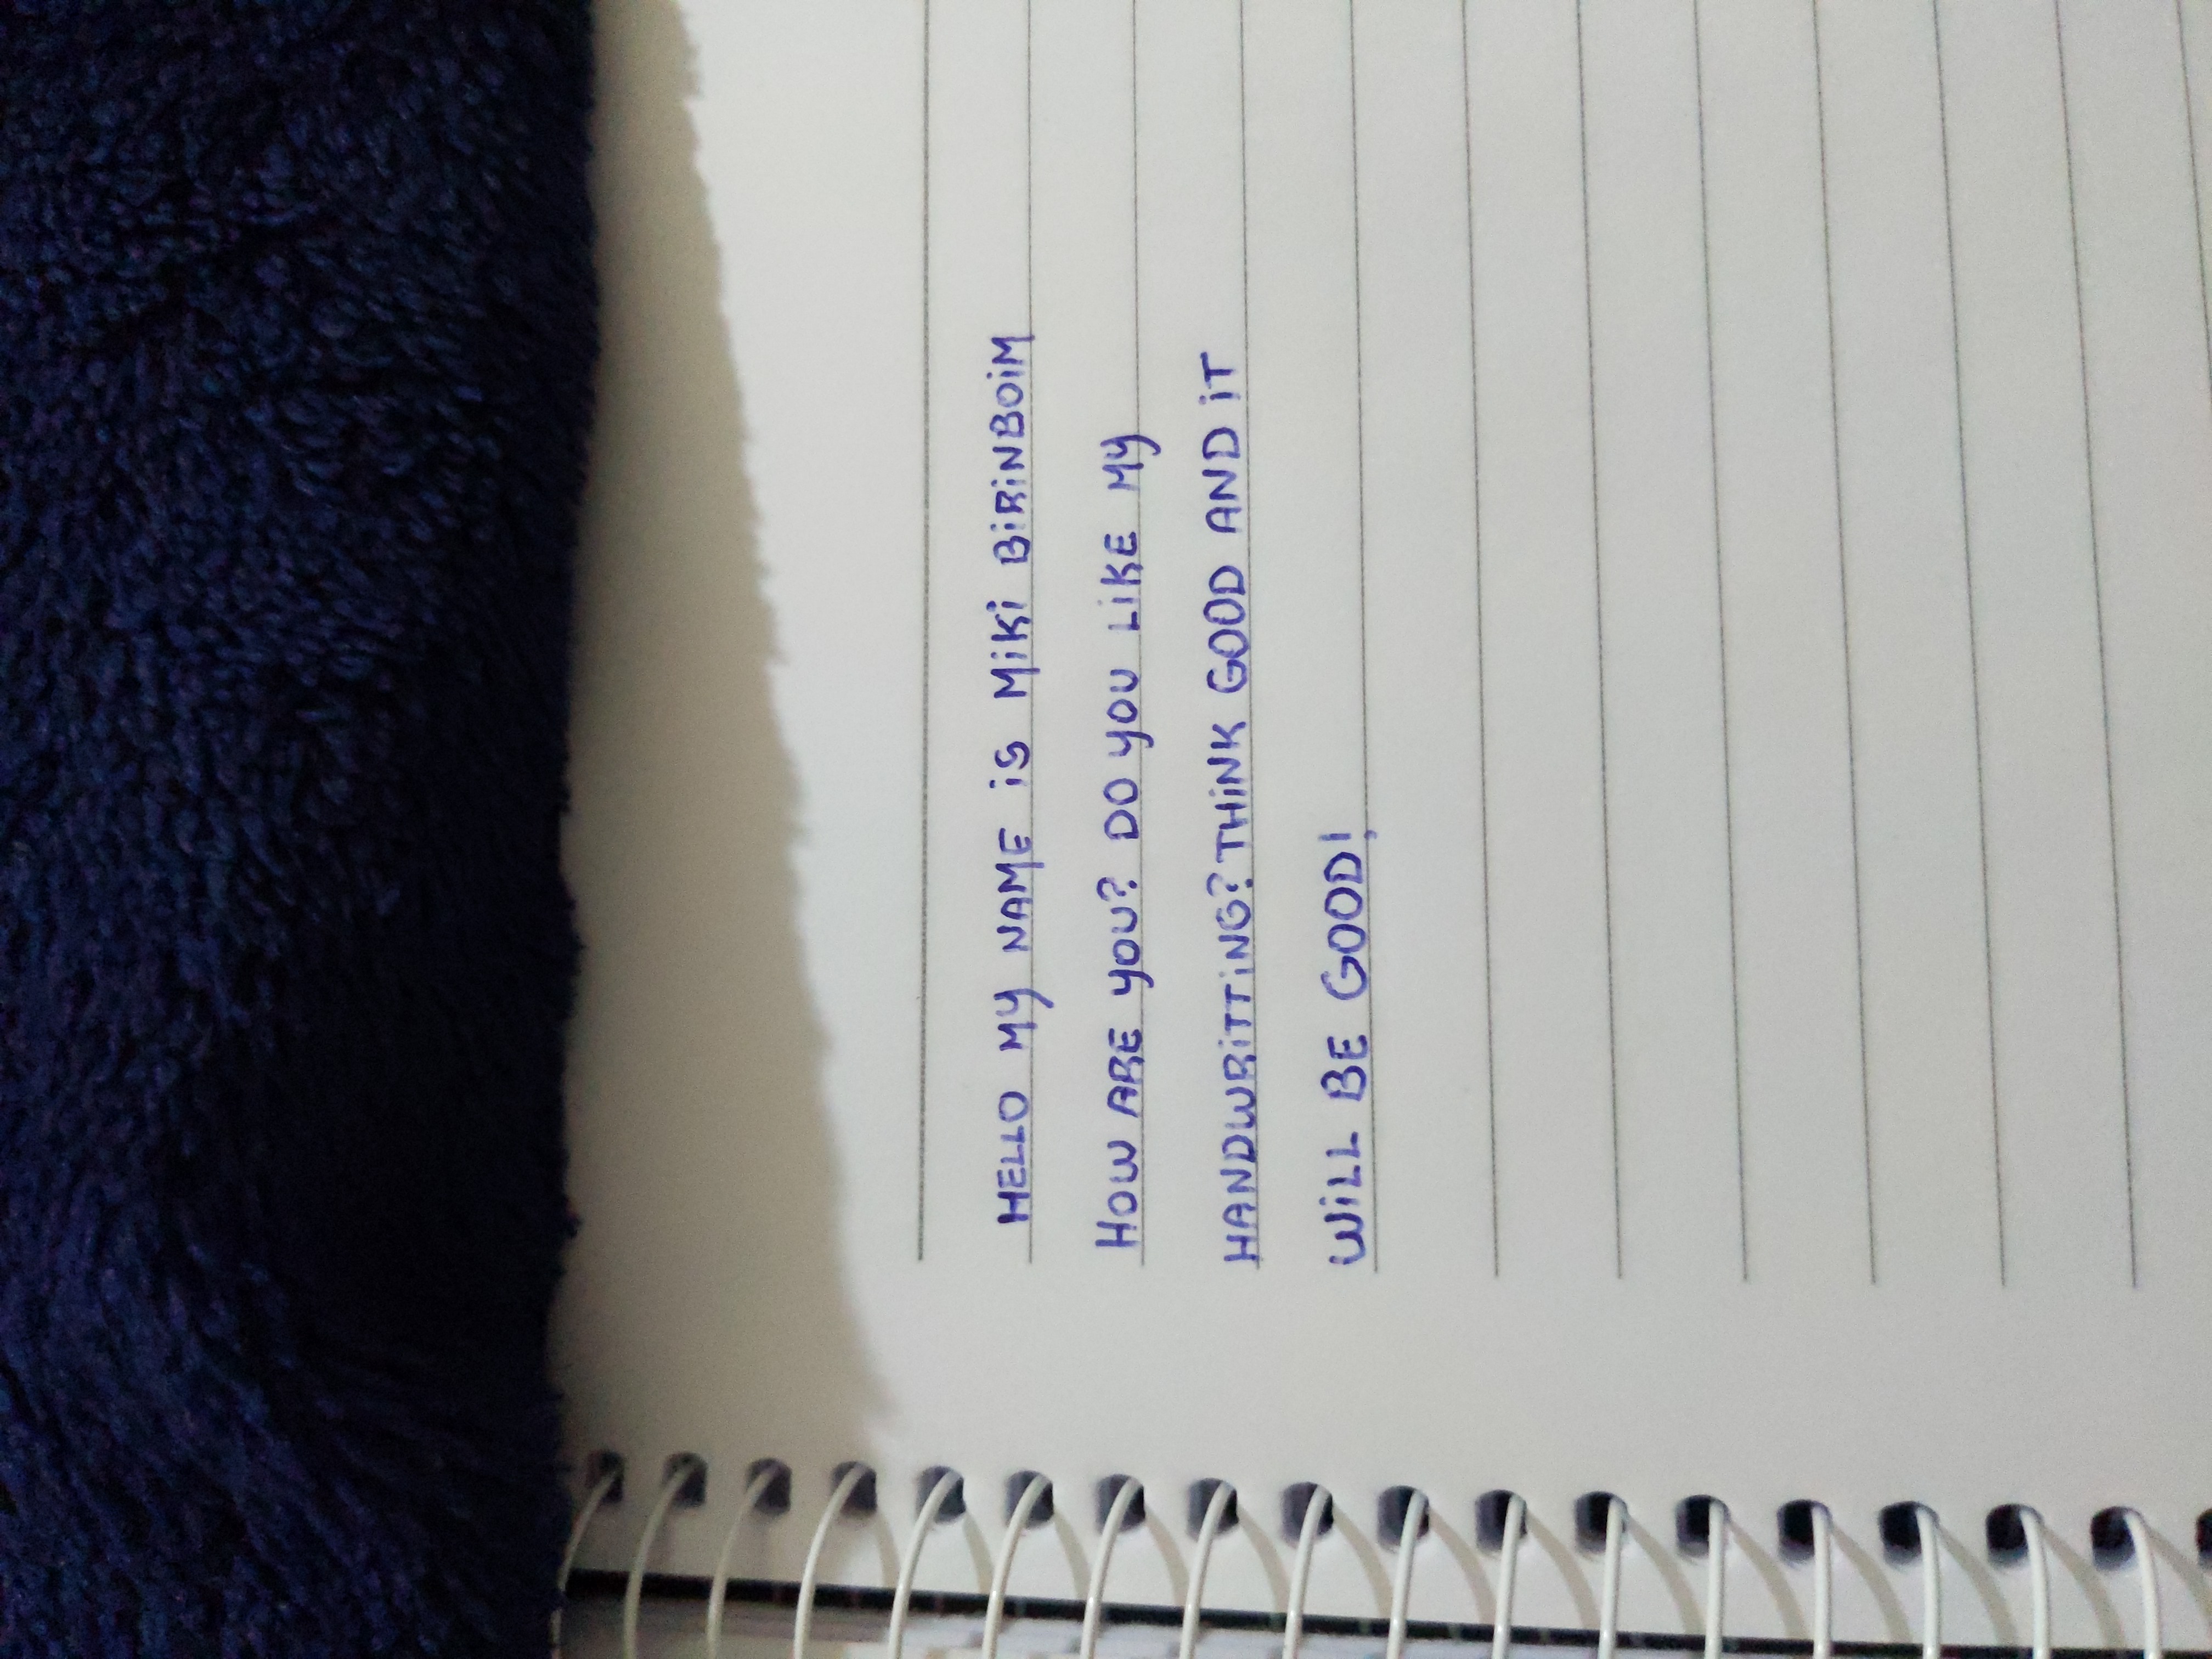 HELLO MY NAME iS MiKi BiRiNBOiM
HOW ARE YOU? DO YOU LiKE MY
HANDWRiTTiNG? THiNK GOOD AND iT
WiLL BE GOOD!